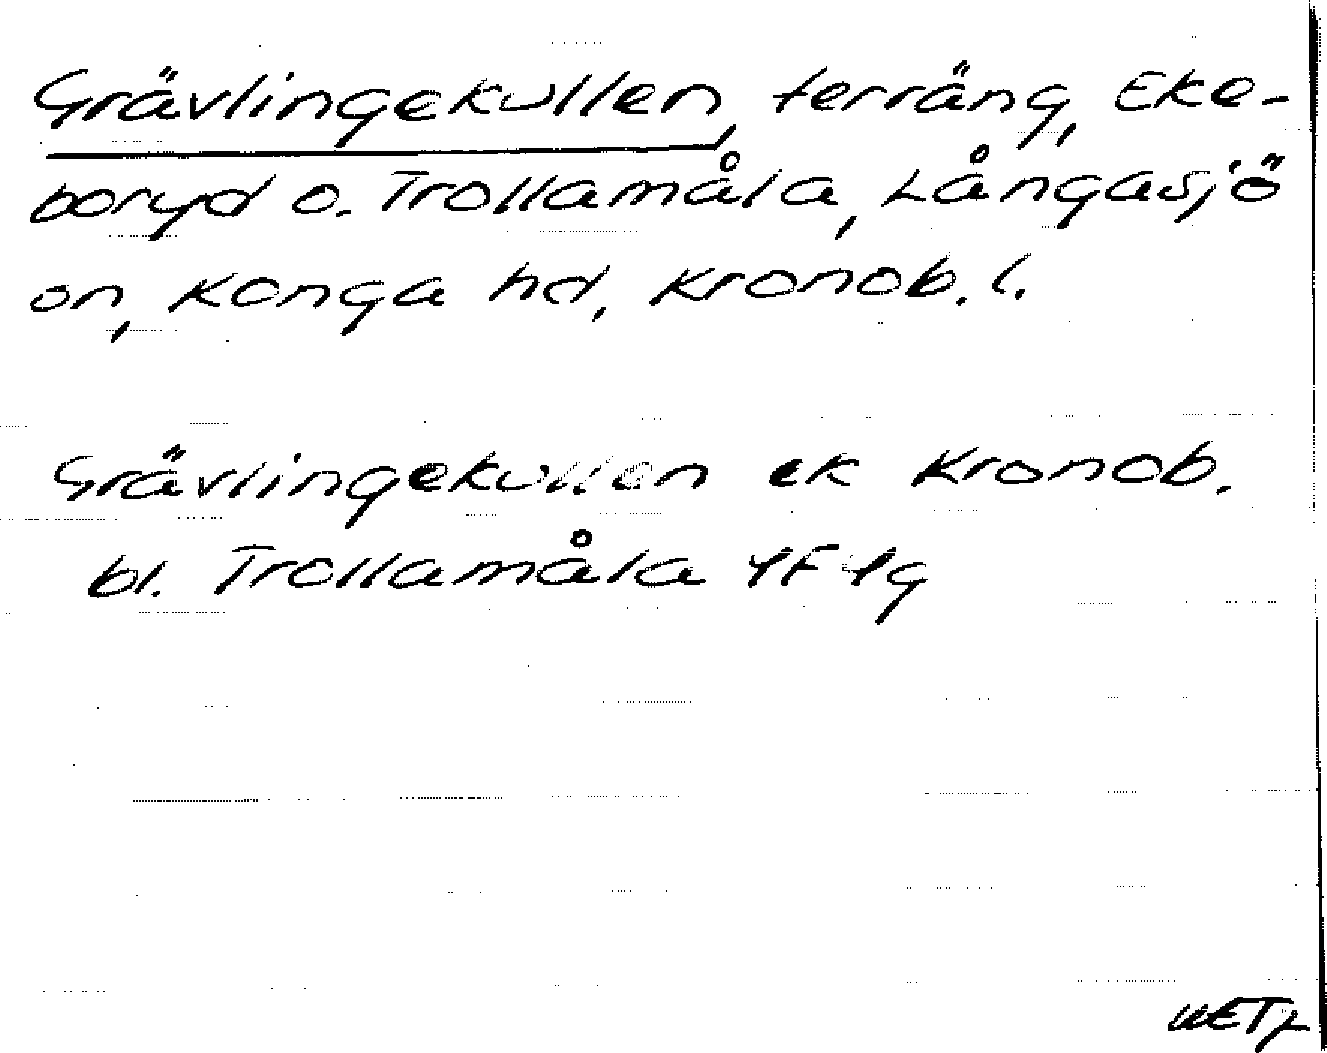 Grävlingekullen, terräng, Eke-
boryd o. Trollamåla, Långasjö
sn, Konga hd, Kronob. l.
Grävlingekullen ek Kronob.
bl. Trollamåla 4F4g